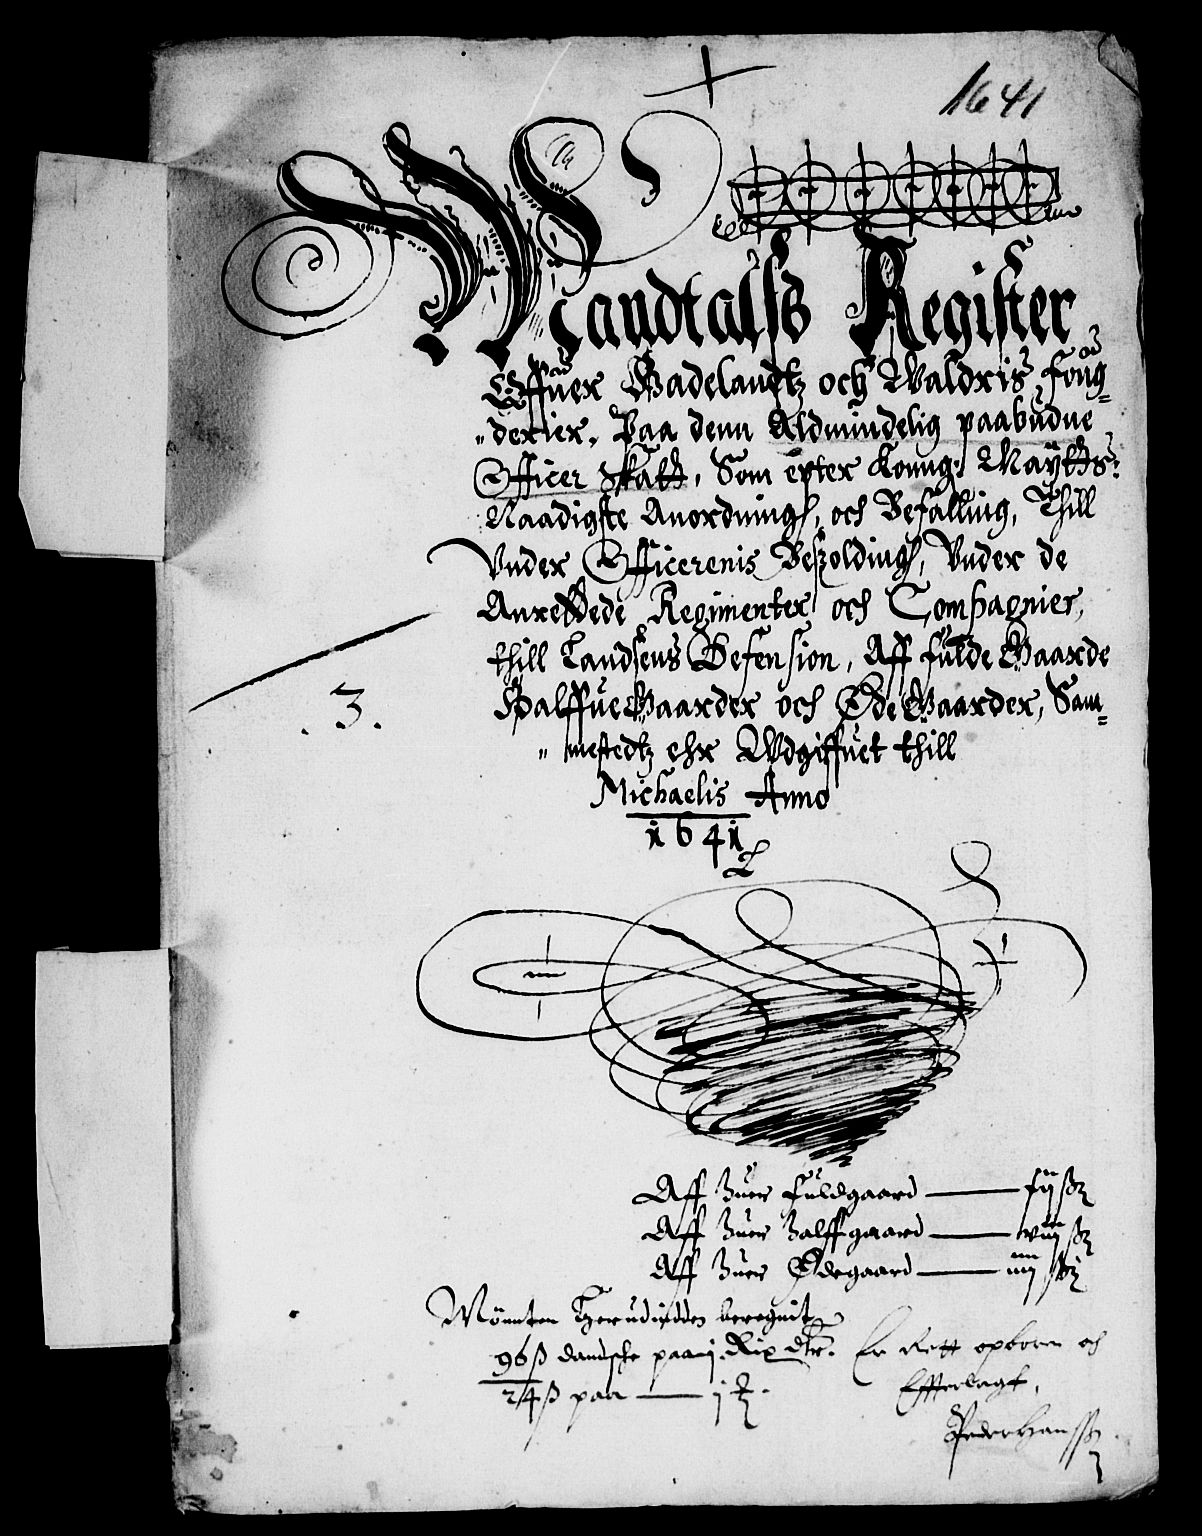 1641
Mandtalss Register
Offuer Hadelandtz och Waldris foug=
"derier, Paa denn Aldmindelig paabudne
Officer Skatt, Som epter Konng: Maÿttz:
Naadigste Anordning, och Befalling, Thill
Vnder Officerenis Beszolding, Vnder de
Anrettede Regimenter och Compagnier,
thill Landsens Defension, Aff fulde Gaarde
Halffue Gaarder och Øde Gaarder, Sam=
"mestedtz ehr Wdgiffuet thill
Michaelis Anno
1641
.3.
Aff huer fuldgaard
Aff huer halffgaard — viij ss
Aff huer Ødegaard — iiij ss
Mönnten herudinden beregnit
96 ß dandsche paa j Rix dlr.
24 ß paa — j
Er Rett opboren och
Effterlagt,
Peder Hanssen